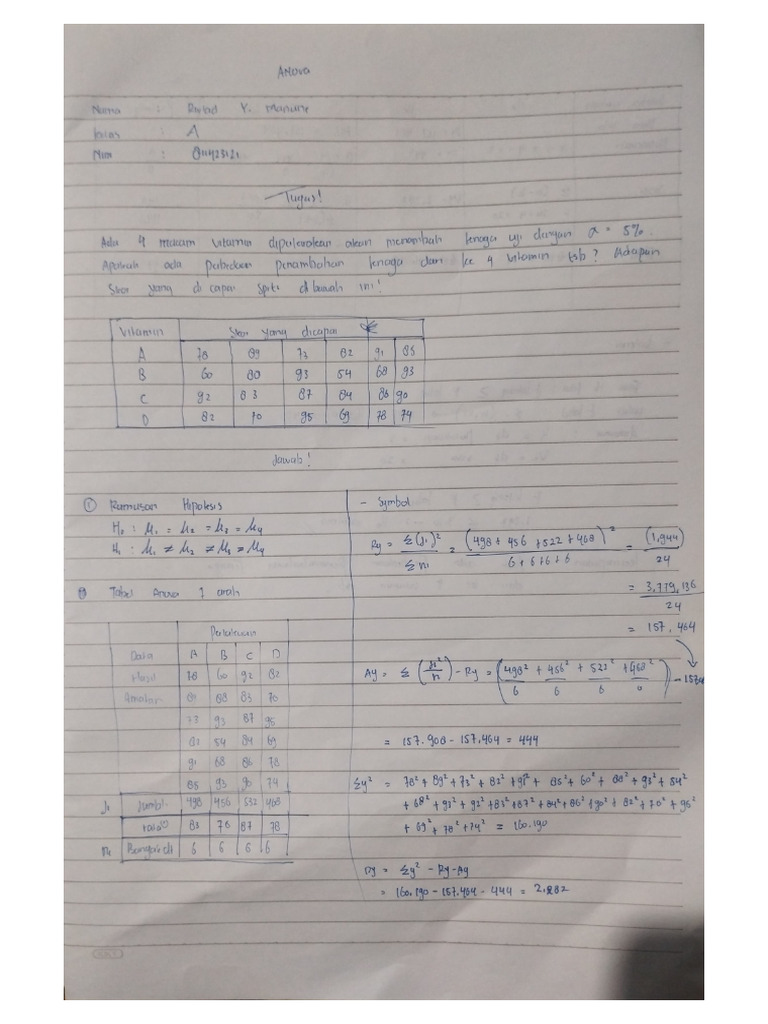 Anova
Nama : Y. Manune
Kelas : A
Nim :
Tugas!
Ada 4 macam vitamin dipurkirakan akan menambah tenaga uji dengan α = 5%.
Apakah ada perbedaan penambahan tenaga dari ke 4 vitamin tsb? Adapun
Skor yang di capai sprti di bawah ini!
Vitamin Skor yang dicapai
A 78 89 73 82 91 85
B 60 80 93 54 68 93
C 92 83 87 84 86 90
D 82 70 95 69 78 74
Jawab!
① Rumusan Hipotesis
H₀ : μ₁ = μ₂ = μ₃ = μ₄
H₁ : μ₁ ≠ μ₂ ≠ μ₃ ≠ μ₄
② Tabel Anova 1 arah
Perlakuan
Data A B C D
Hasil 78 60 92 82
89 88 83 70
73 93 87 95
82 54 84 69
91 68 86 78
85 93 90 74
Ji Jumlah 498 456 522 468
rata² 83 76 87 78
ni 6 6 6 6
- Symbol
Ry = Σ(Ji)² / Σni = (498 + 456 + 522 + 468)² / 6 + 6 + 6 + 6 = (1,944) / 24
= 3,779,136 / 24
= 157,464
Ay = Σ (Ji² / n) - Ry = (498² / 6 + 456² / 6 + 522² / 6 + 468² / 6) - 157.4
= 157.908 - 157,464 = 444
Σy² = 78² + 89² + 73² + 82² + 91² + 85² + 60² + 88² + 93² + 54²
+ 68² + 93² + 92² + 83² + 87² + 84² + 86² + 90² + 82² + 70² + 95²
+ 69² + 78² + 74² = 160.190
Dy = Σy² - Ry - Ay
= 160.190 - 157.464 - 444 = 2.282